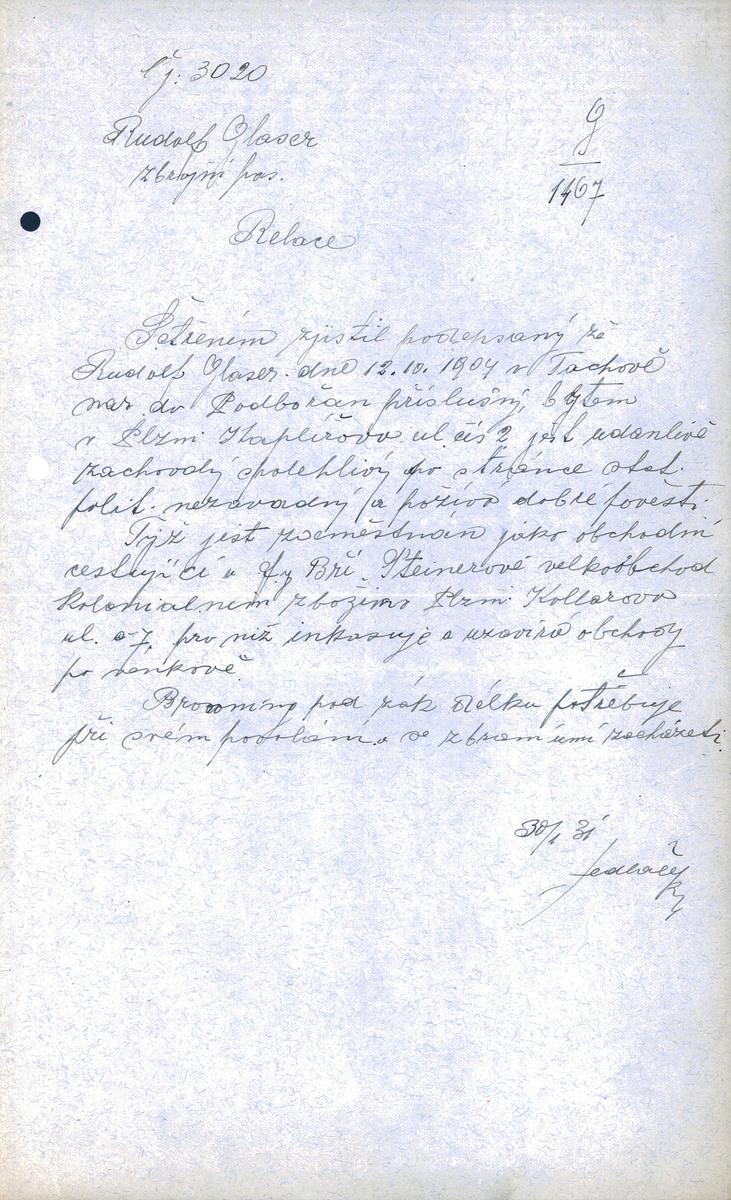 Čj. 3020
G
1467
Rudolf Glaser
zbrojní pas.
Relace
Šetřením zjistil podepsaný že
Rudolf Glaser dne 12.10. 1904 v Tachově
nar. do Podbořan příslušný, bytem
v Plzni Kaplířova ul. čís 2 jest udánlivě
zachovalý spolehlivý po stránce stat.
polit. nezavadný a požívá dobré pověsti.
Týž jest zaměstnán jako obchodní
cestující u fy Bří Steinerové velkoobchod
kolonialnem zbožím v Plzni Kollarova
ul. č 7, pro niž inkasuje a uzavírá obchody
po venkově.
Browning pod zák délku potřebuje
při svém povolání a se zbraní umí zacházeti.
30/1 31